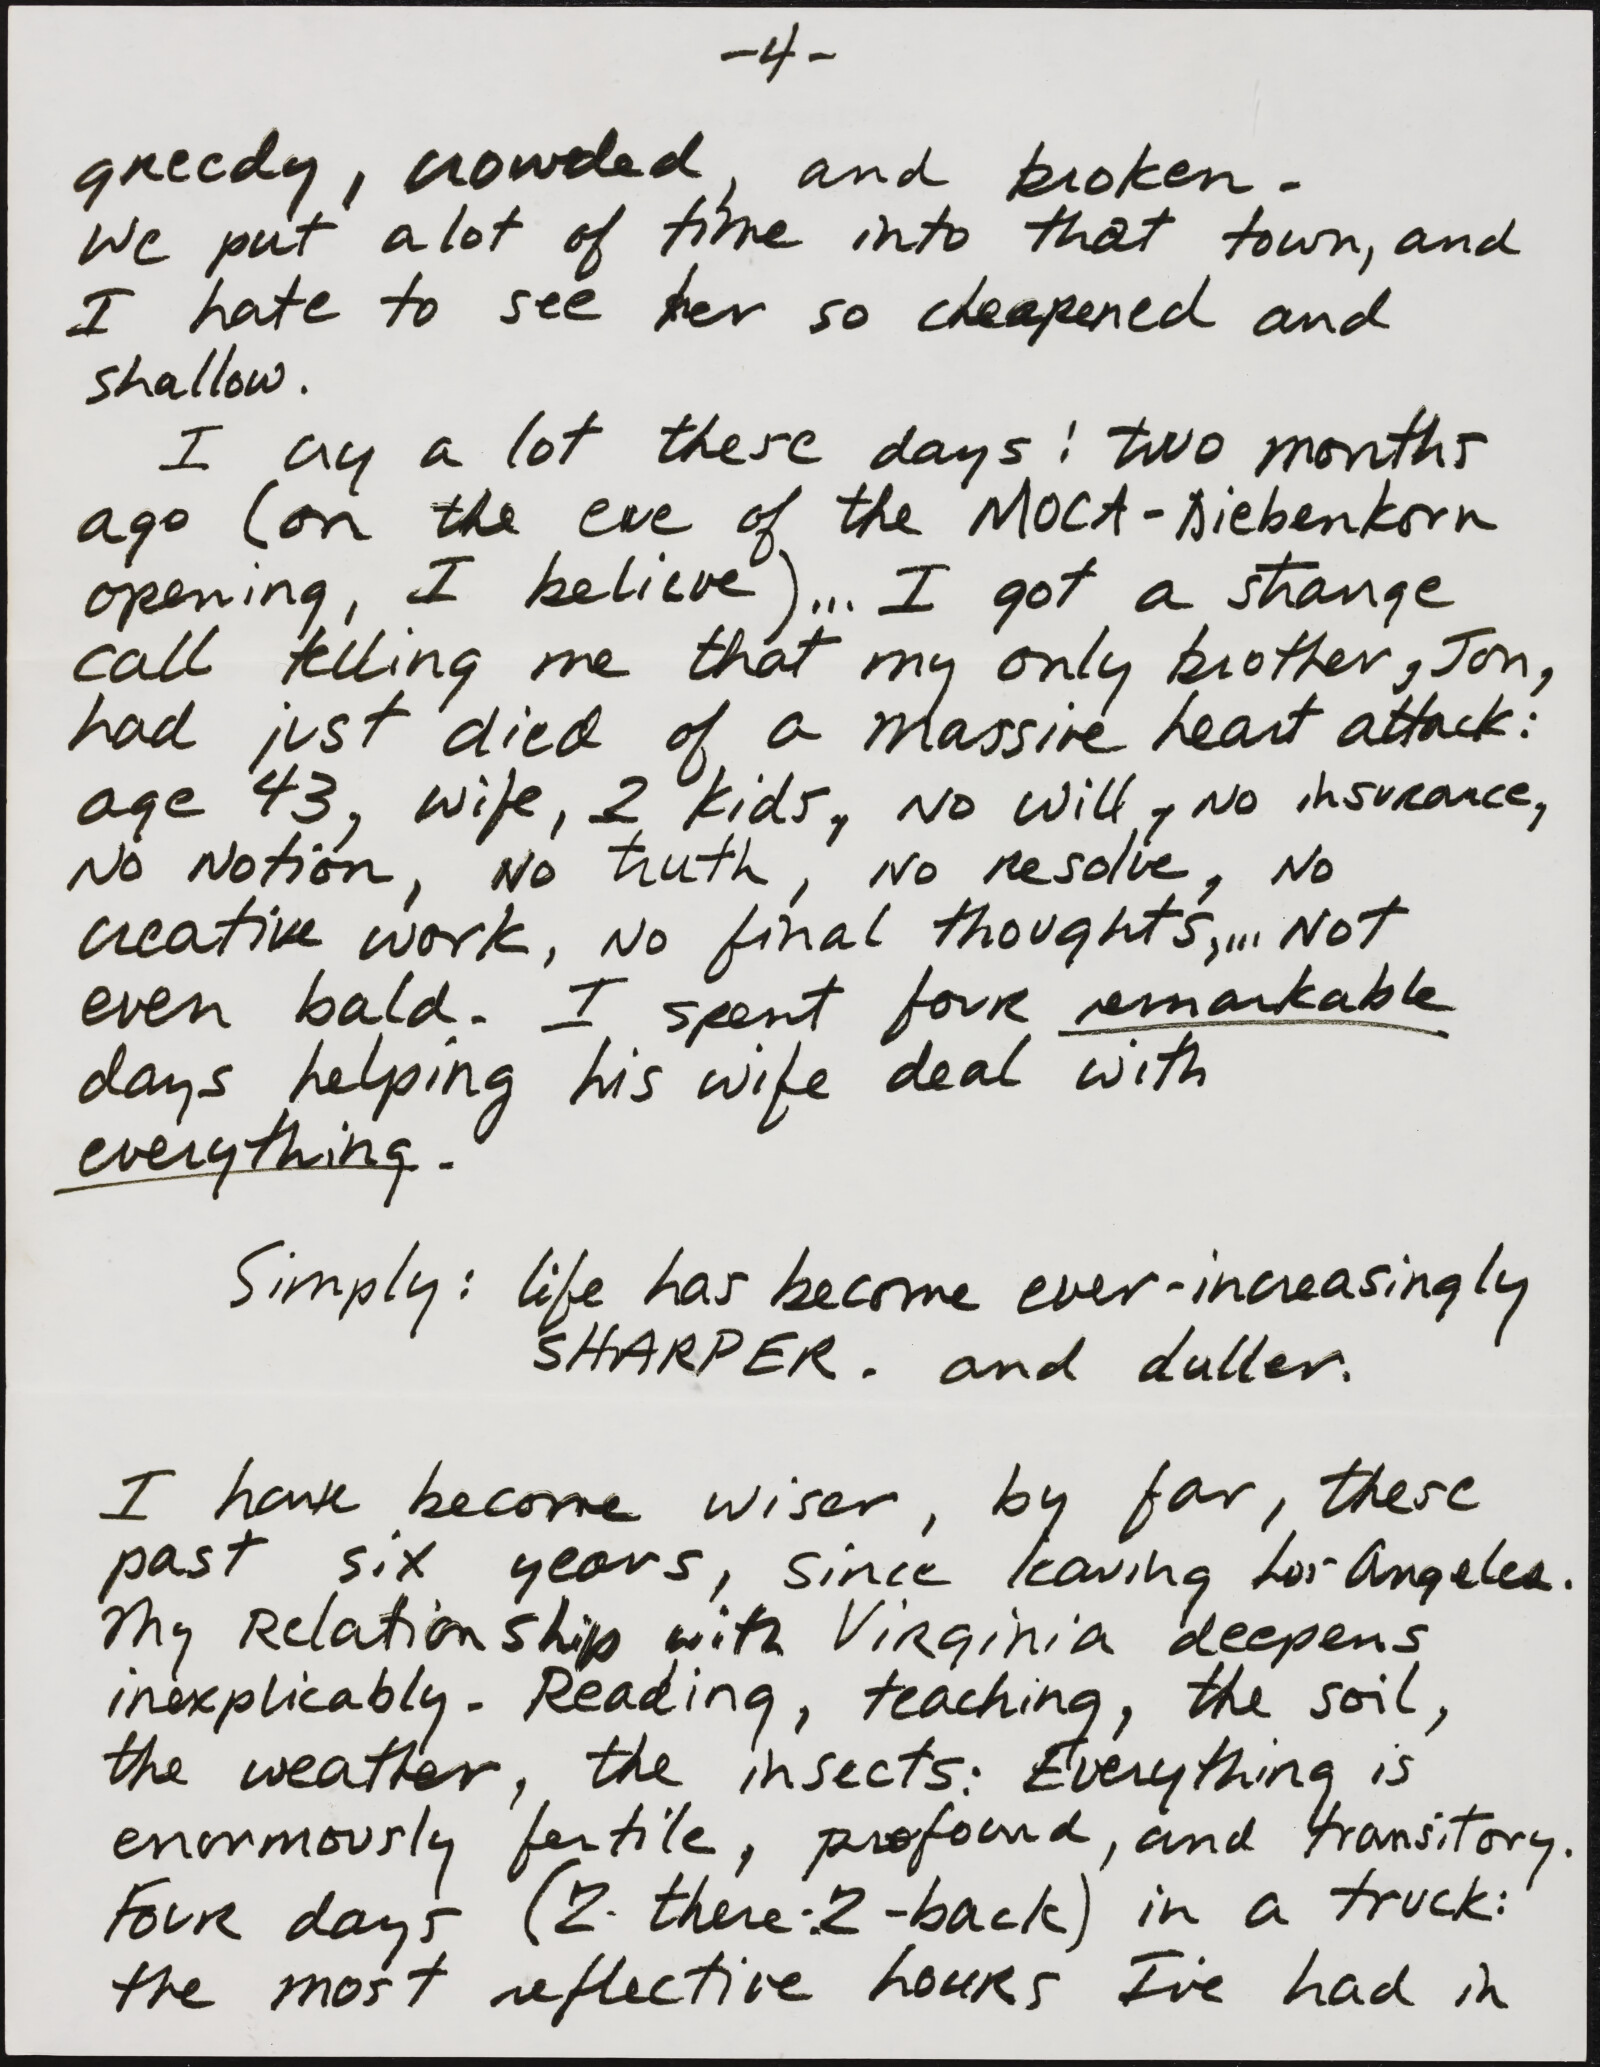 -4-
greedy, crowded, and broken.
We put a lot of time into that town, and
I hate to see her so cheapened and
shallow.
I cry a lot these days: two months
ago (on the eve of the MOCA-Diebenkorn
opening, I believe)... I got a strange
call telling me that my only brother, Jon,
had just died of a massive heart attack:
age 43, wife, 2 kids, no will, no insurance,
no notion, no truth, no resolve, no
creative work, no final thoughts,... not
even bald. I spent four remarkable
days helping his wife deal with
everything.
Simply: life has become ever-increasingly
SHARPER. and duller.
I have become wiser, by far, these
past six years, since leaving Los Angeles.
My relationship with Virginia deepens
inexplicably. Reading, teaching, the soil,
the weather, the insects: Everything is
enormously fertile, profound, and transitory.
Four days (2-there-2-back) in a truck:
the most reflective hours I've had in